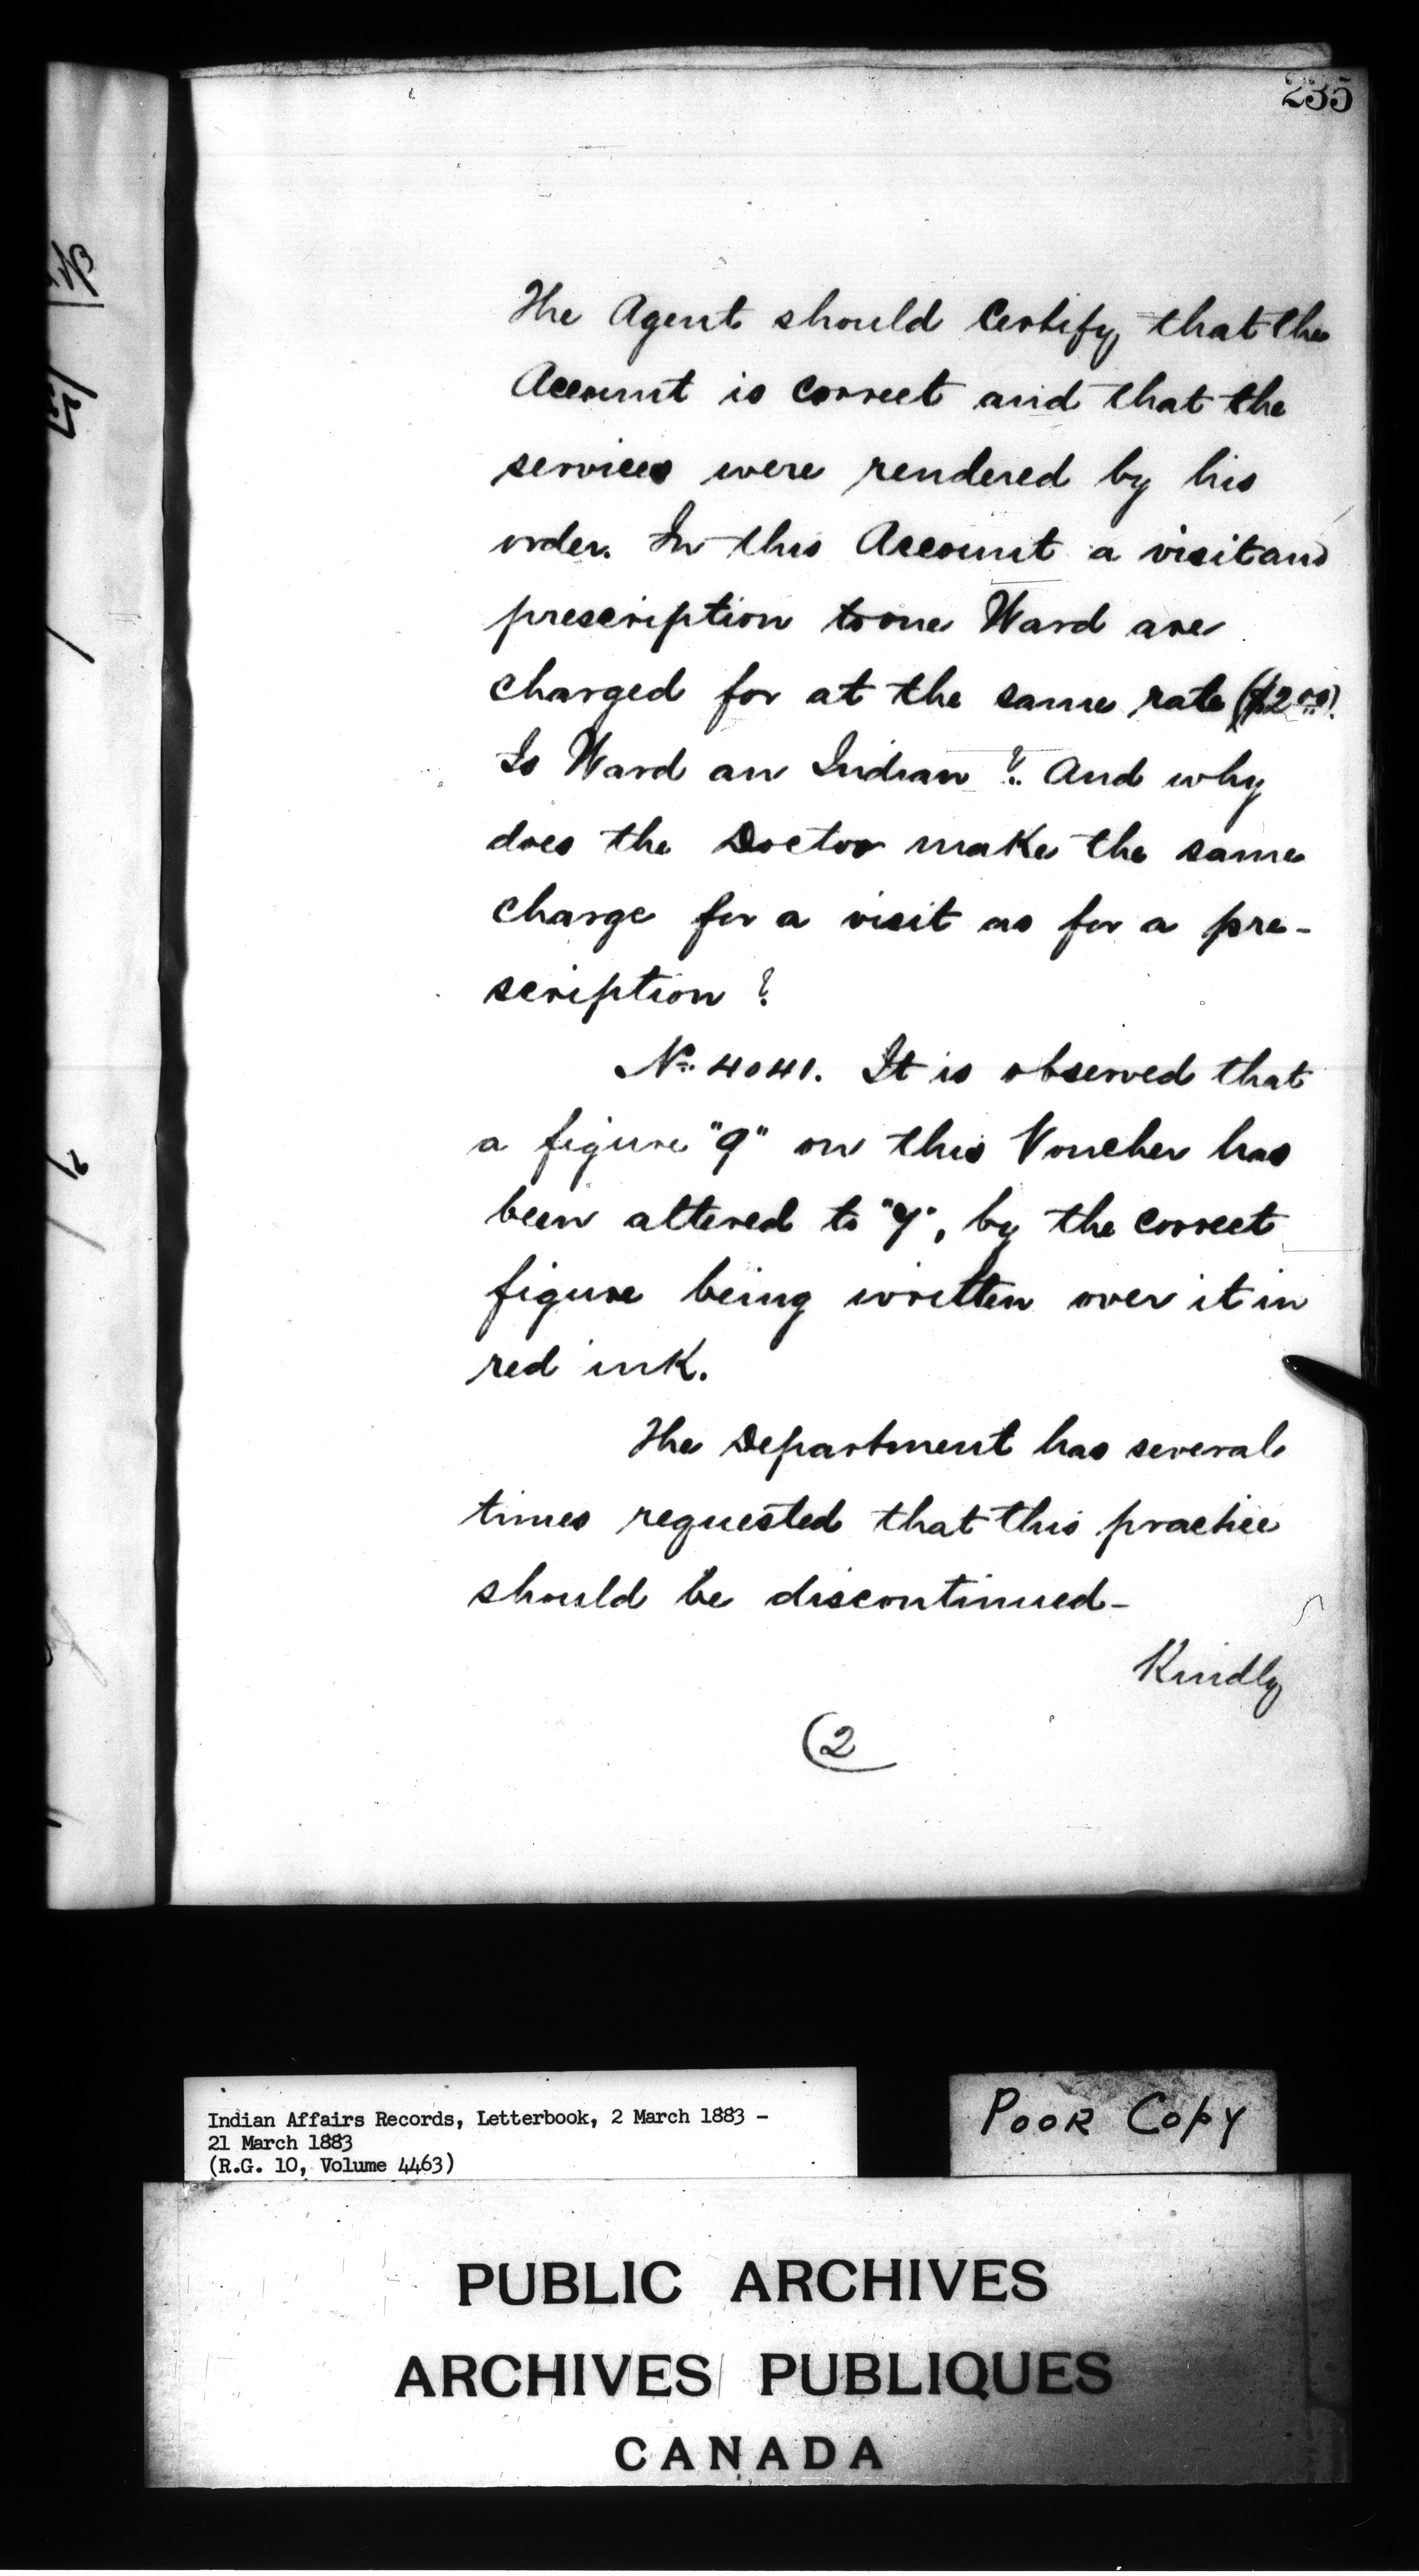 235
The Agent should Certify that the
Account is correct and that the
services were rendered by his
order. In this Account a visit and
prescription to one Ward are
charged for at the same rate ($2.00).
Is Ward an Indian? And why
does the Doctor make the same
charge for a visit as for a pre-
scription?
No. 4041. It is observed that
a figure "9" on this Voucher has
been altered to "7", by the correct
figure being written over it in
red ink.
The Department has several
times requested that this practice
should be discontinued-
Kindly
(2
Indian Affairs Records, Letterbook, 2 March 1883 -
21 March 1883
(R.G. 10, Volume 4463)
POOR COPY
PUBLIC ARCHIVES
ARCHIVES PUBLIQUES
CANADA